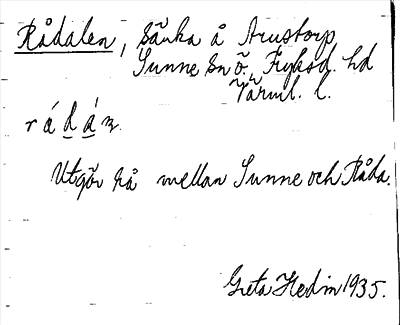 Rådalen, sänka å Arnstorp
Sunne sn ö. Fryksd. hd
Värml. l.
rádáɴ.
Utgör rå mellan Sunne och Råda.
Greta Hedin 1935.